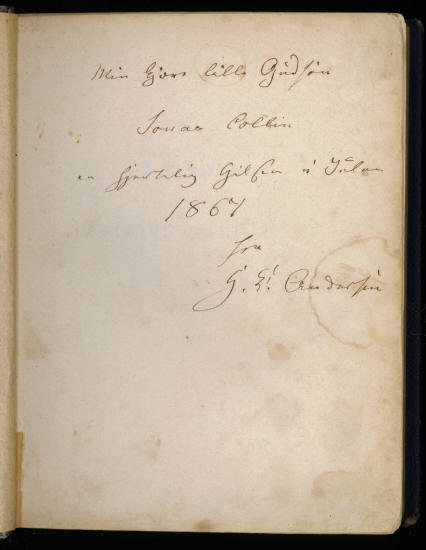 Min kjære lille Gudsøn
Jonas Collin
en hjertelig Hilsen i Julen
1867
fra
H. C. Andersen